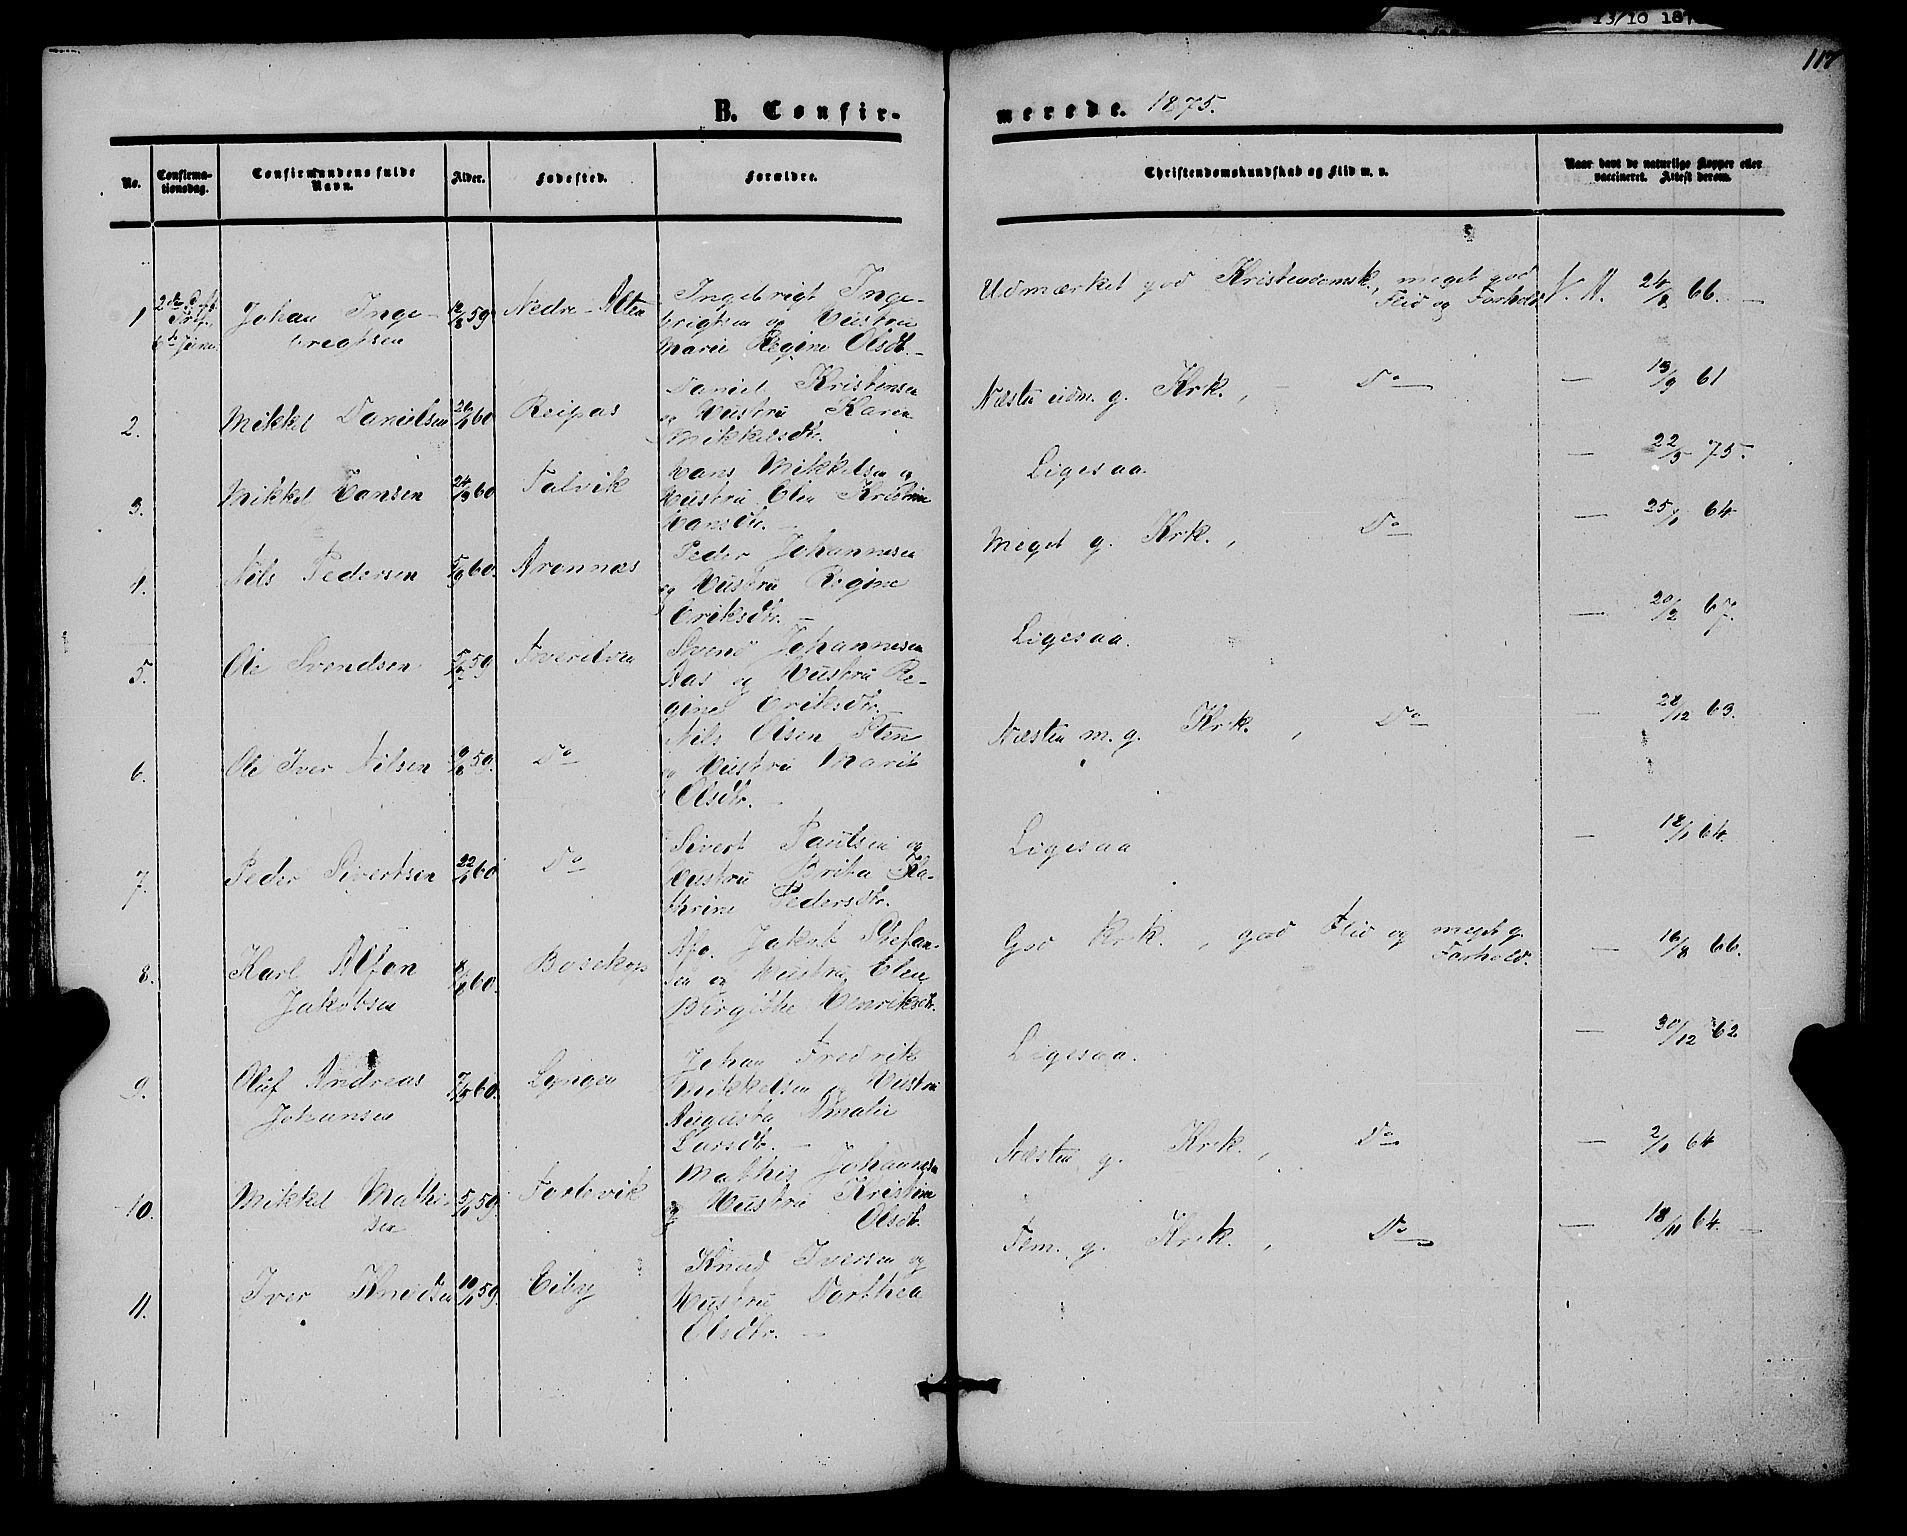 13/10 187
117
B. Confir-
merede. 1875.
No.
Confirma-
tionsdag.
Confirmandens fulde
Navn.
Alder.
Fødested.
Forældre.
Christendomskundskab og Flid m. v.
Naar havt de naturlige Kopper eller
vaccineret. Attest derom.
1
Johan Inge-
brigtsen
12/8 59
Nedre-Alten
Ingebrigt Inge-
brigtsen og Hustru
Marie Regine Olsdtr.
Udmærket god Kristendomsk., meget god
Flid og Forhold
V. A. 24/8 66.
2.
Mikkel Danielsen
60
Reipas
Daniel Kristensen
og Hustru Karen
Mikkelsdtr.
Næsten udm. g. Krk., Do
— 13/9 61
3.
Mikkel Hansen
24/3 60
Talvik
Hans Mikkelsen og
Hustru Elen Kristine
Hansdtr.
Ligesaa.
— 22/5 75.
4.
Nils Pedersen
60.
Aronnæs
Peder Johannesen
og Hustru Regine
Eriksdtr.
Meget g. Krk., Do
— 64.
5.
Ole Svendsen
59
Tverelven
Svend Johannesen
Aas og Hustru Re-
gine Eriksdtr.
Ligesaa.
— 20/2 67.
6.
Ole Iver Nilsen
59.
Do
Nils Olsen Sten
og Hustru Marit
Olsdtr.
Næsten m. g. Krk., Do
— 28/12 63.
7.
Peder Sivertsen
60
Do
Sivert Paulsen og
Hustru Brita Ka-
thrine Pedersdtr.
Ligesaa
— 18/1 64.
8.
Karl Alfon
Jakobsen
60.
Bosekop
Afd. Jakob Stefan-
sen og Hustru Elen
Birgitte Henriksdtr.
God Krk., god Flid og meget g.
Forhold.
— 16/8 66.
9.
Oluf Andreas
Johansen
60.
Lyngen
Johan Fredrik
Mikkelsen og Hustru
Augusta Amalie
Larsdtr.
Ligesaa.
— 30/12 62
10.
Mikkel Mathis-
sen
59.
Mathis Johannesen
og Hustru Kristine
Olsdtr.
Næsten g. Krk., Do
— 64
11.
Iver Knudsen
59.
Eiby
Knud Iversen og
Hustru Dorthea
Olsdtr.
Tem. g. Krk., Do
— 18/11 64.